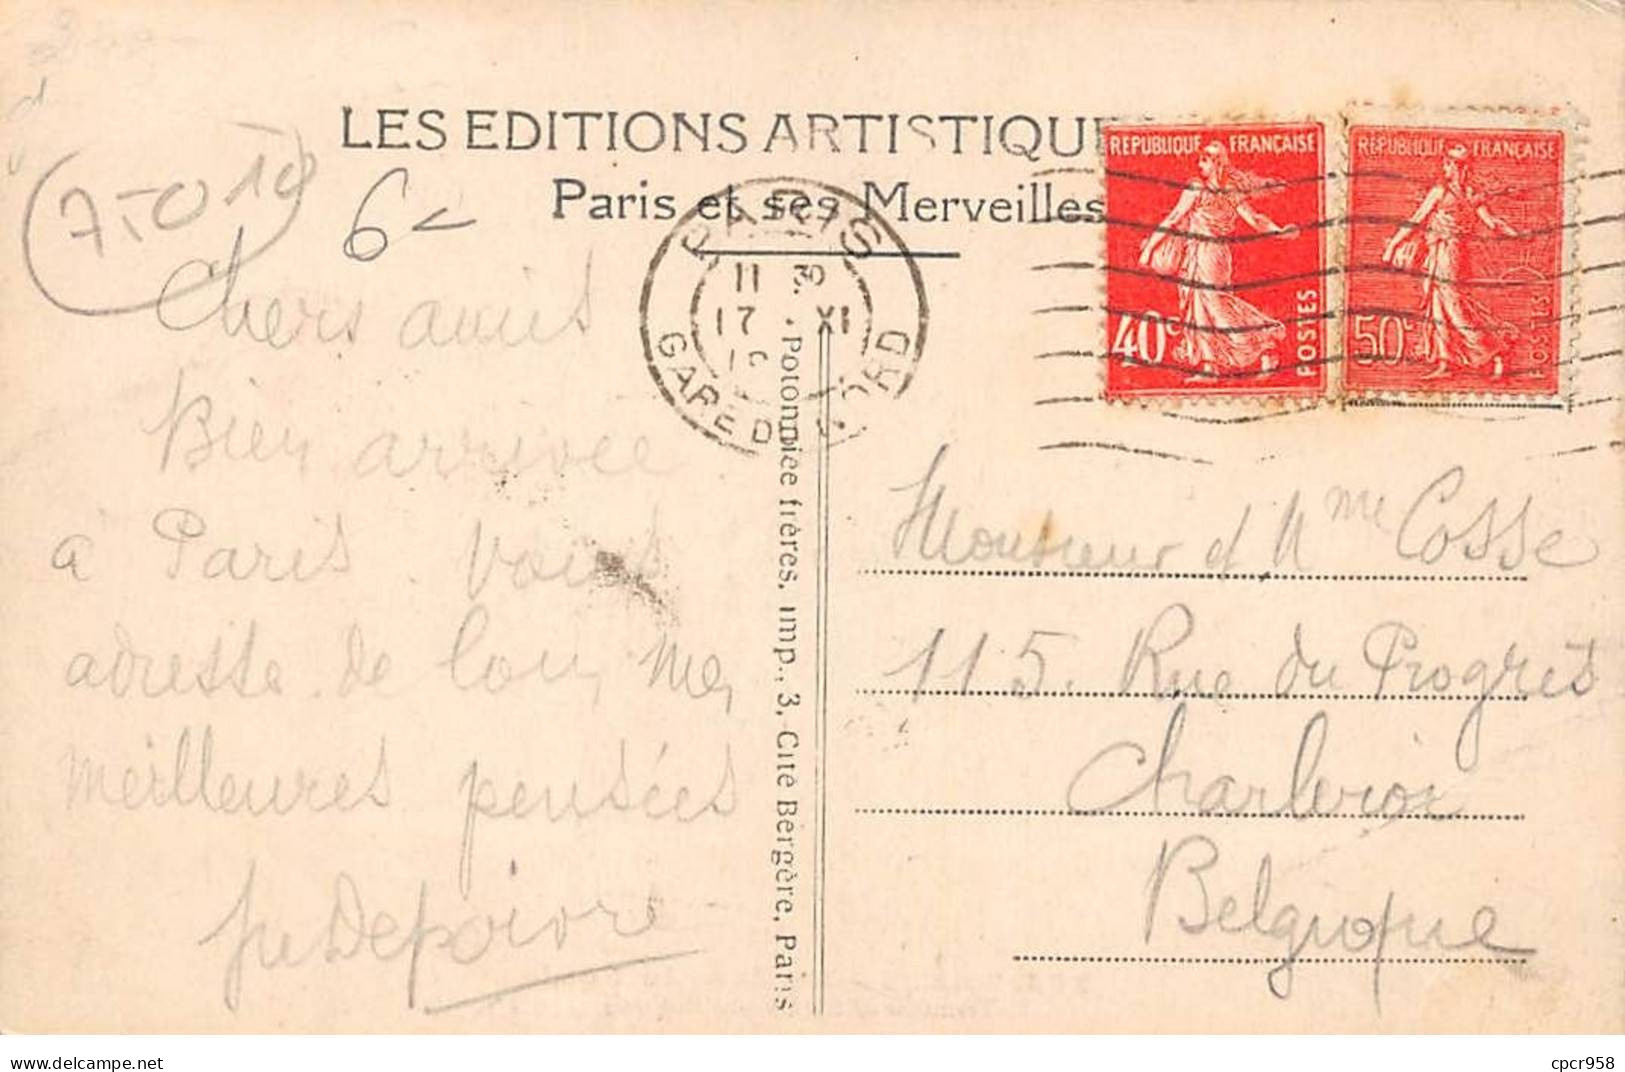 LES EDITIONS ARTISTIQU
Paris et ses Merveilles
7-5-010
6-
PARIS
11
17 XI
19
GARE DU NORD
REPUBLIQUE FRANÇAISE
40c POSTES
REPUBLIQUE FRANÇAISE
50c POSTES
Chers amis
Bien arrivée
à Paris. vous
adresse de loin mes
meilleures pensées
Depoivre
Potonniée frères, imp., 3, Cité Bergère, Paris
Monsieur et Mme Cosse
115. Rue du Progrès
Charleroi
Belgique
delcampe.net
cpcr958